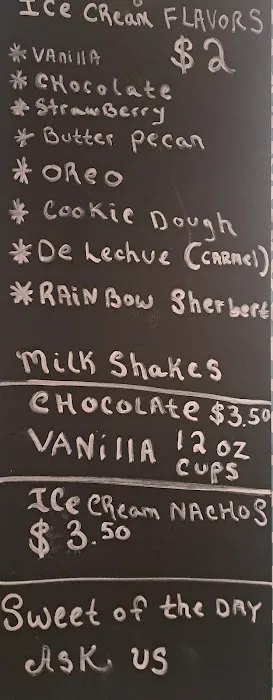 Ice Cream FLAVORS
* VAnillA $2
* CHocolate
* StrawBerry
* Butter pecan
* OReo
* Cookie Dough
* De Lechue (CARMel)
* RAiNBow SherBert
Milk Shakes
CHOCOLAte $3.50
VANillA 12 oz
CUPS
ICe CReam NACHOS
$ 3.50
Sweet of the DAY
ASK US